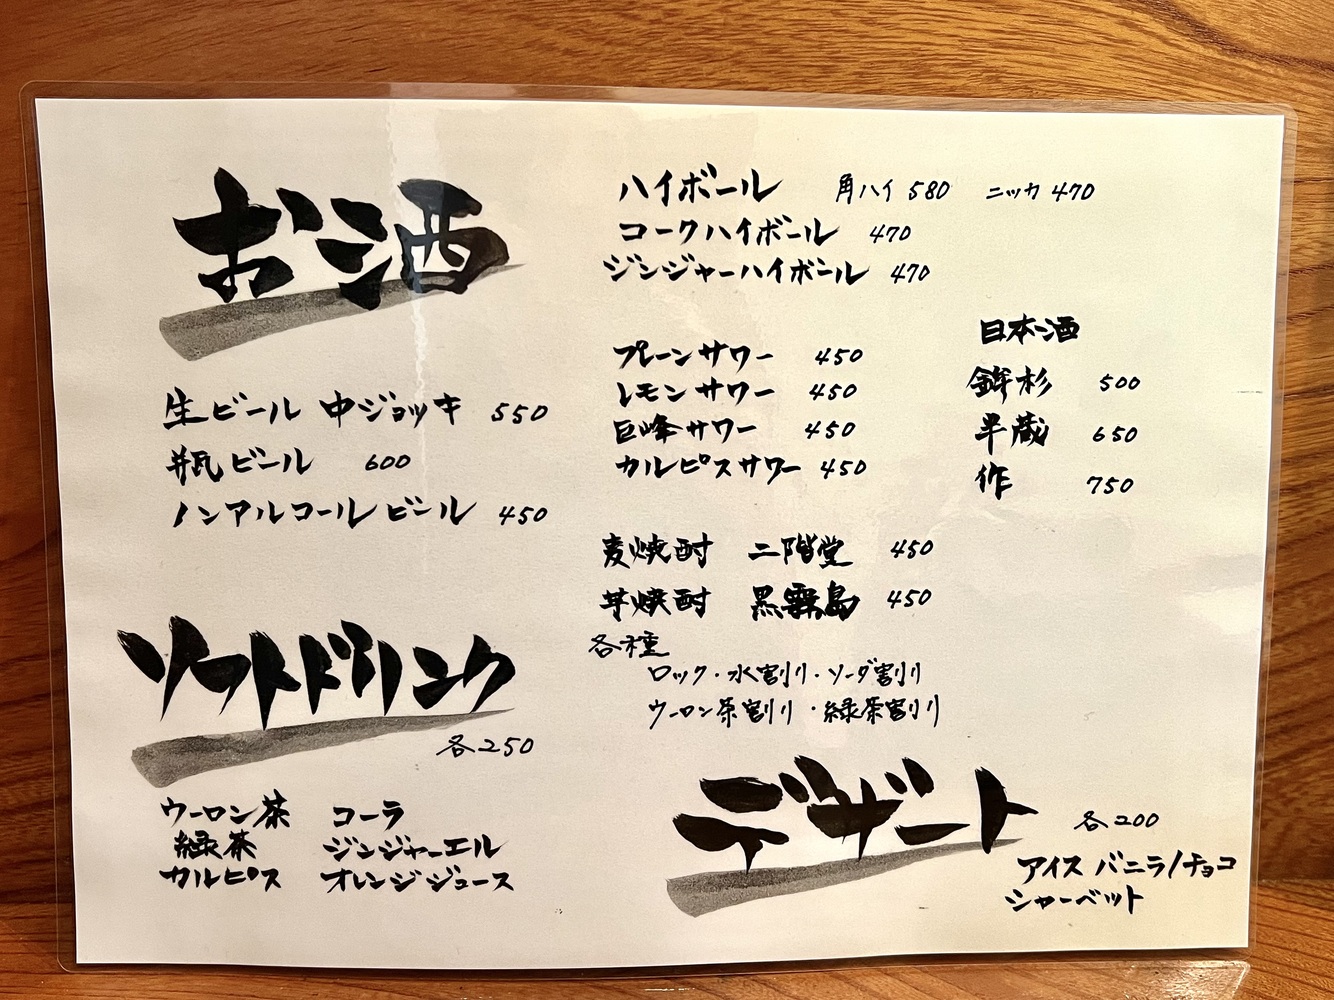 お酒
生ビール 中ジョッキ 550
瓶ビール 600
ノンアルコールビール 450
ハイボール 角ハイ 580 ニッカ 470
コークハイボール 470
ジンジャーハイボール 470
プレーンサワー 450
レモンサワー 450
巨峰サワー 450
カルピスサワー 450
日本酒
鉾杉 500
半蔵 650
作 750
麦焼酎 二階堂 450
芋焼酎 黒霧島 450
各種
ロック・水割り・ソーダ割り
ウーロン茶割り・緑茶割り
ソフトドリンク
各250
ウーロン茶 コーラ
緑茶 ジンジャーエール
カルピス オレンジジュース
デザート
各200
アイス バニラ/チョコ
シャーベット